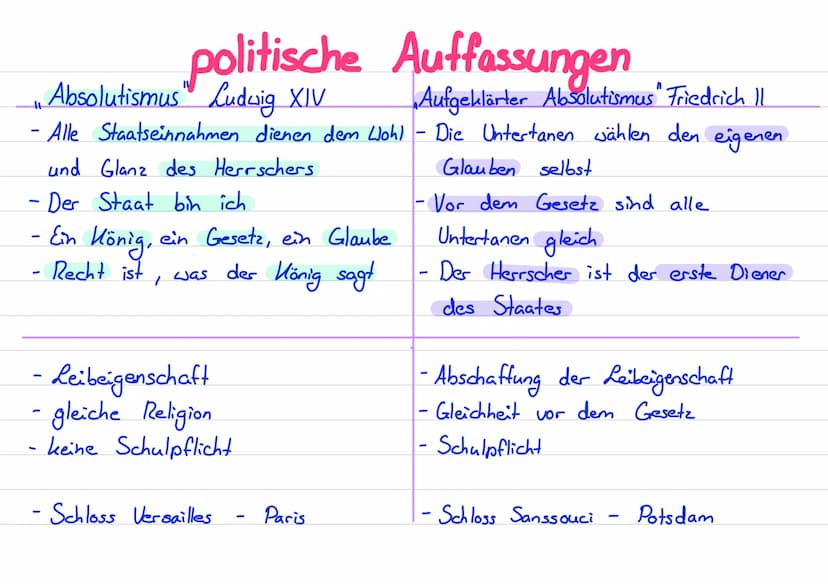 politische Auffassungen
„Absolutismus" Ludwig XIV
- Alle Staatseinnahmen dienen dem Wohl
und Glanz des Herrschers
- Der Staat bin ich
- Ein König, ein Gesetz, ein Glaube
- Recht ist, was der König sagt
- Leibeigenschaft
- gleiche Religion
- keine Schulpflicht
- Schloss Versailles - Paris
„Aufgeklärter Absolutismus" Friedrich II
- Die Untertanen wählen den eigenen
Glauben selbst
- Vor dem Gesetz sind alle
Untertanen gleich
- Der Herrscher ist der erste Diener
des Staates
- Abschaffung der Leibeigenschaft
- Gleichheit vor dem Gesetz
- Schulpflicht
- Schloss Sanssouci - Potsdam